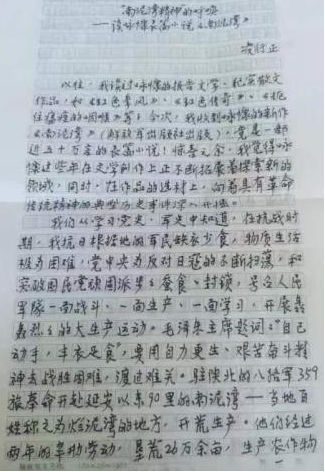 南泥湾精神的呼唤
——读咏慷长篇小说《南泥湾》
凌行正
以往，我读过咏慷的报告文学、纪实散文
作品，如《红色季风》、《红色传奇》、《抱
住瘦瘦的》等；今次，我收到咏慷的新作
《南泥湾》（解放军出版社出版），竟是一部
近五十万言的长篇小说！惊喜之余，我觉得咏
慷这些年在文学创作上正不断拓展着探索新的
领域，同时，在作品的选材上，向着具有革命
传统精神的典型历史事件深入开掘。
我们从学习党史、军史中知道，在抗战时
期，我抗日根据地的军民缺衣少食，物质生活
极为困难，党中央为反对日寇的不断扫荡，和
突破国民党顽固派的蚕食、封锁，号召人民
军队一面战斗、一面生产、一面学习，开展轰
轰烈烈的大生产运动。毛泽东主席题词：“自己
动手，丰衣足食”，要用自力更生、艰苦奋斗精
神去战胜困难，渡过难关。驻陕北的八路军359
旅奉命开赴延安以东90里的南泥湾——当地百
姓称之为烂泥湾的地方，开荒生产。他们经过
两年的辛勤劳动，垦荒26万余亩，生产农作物